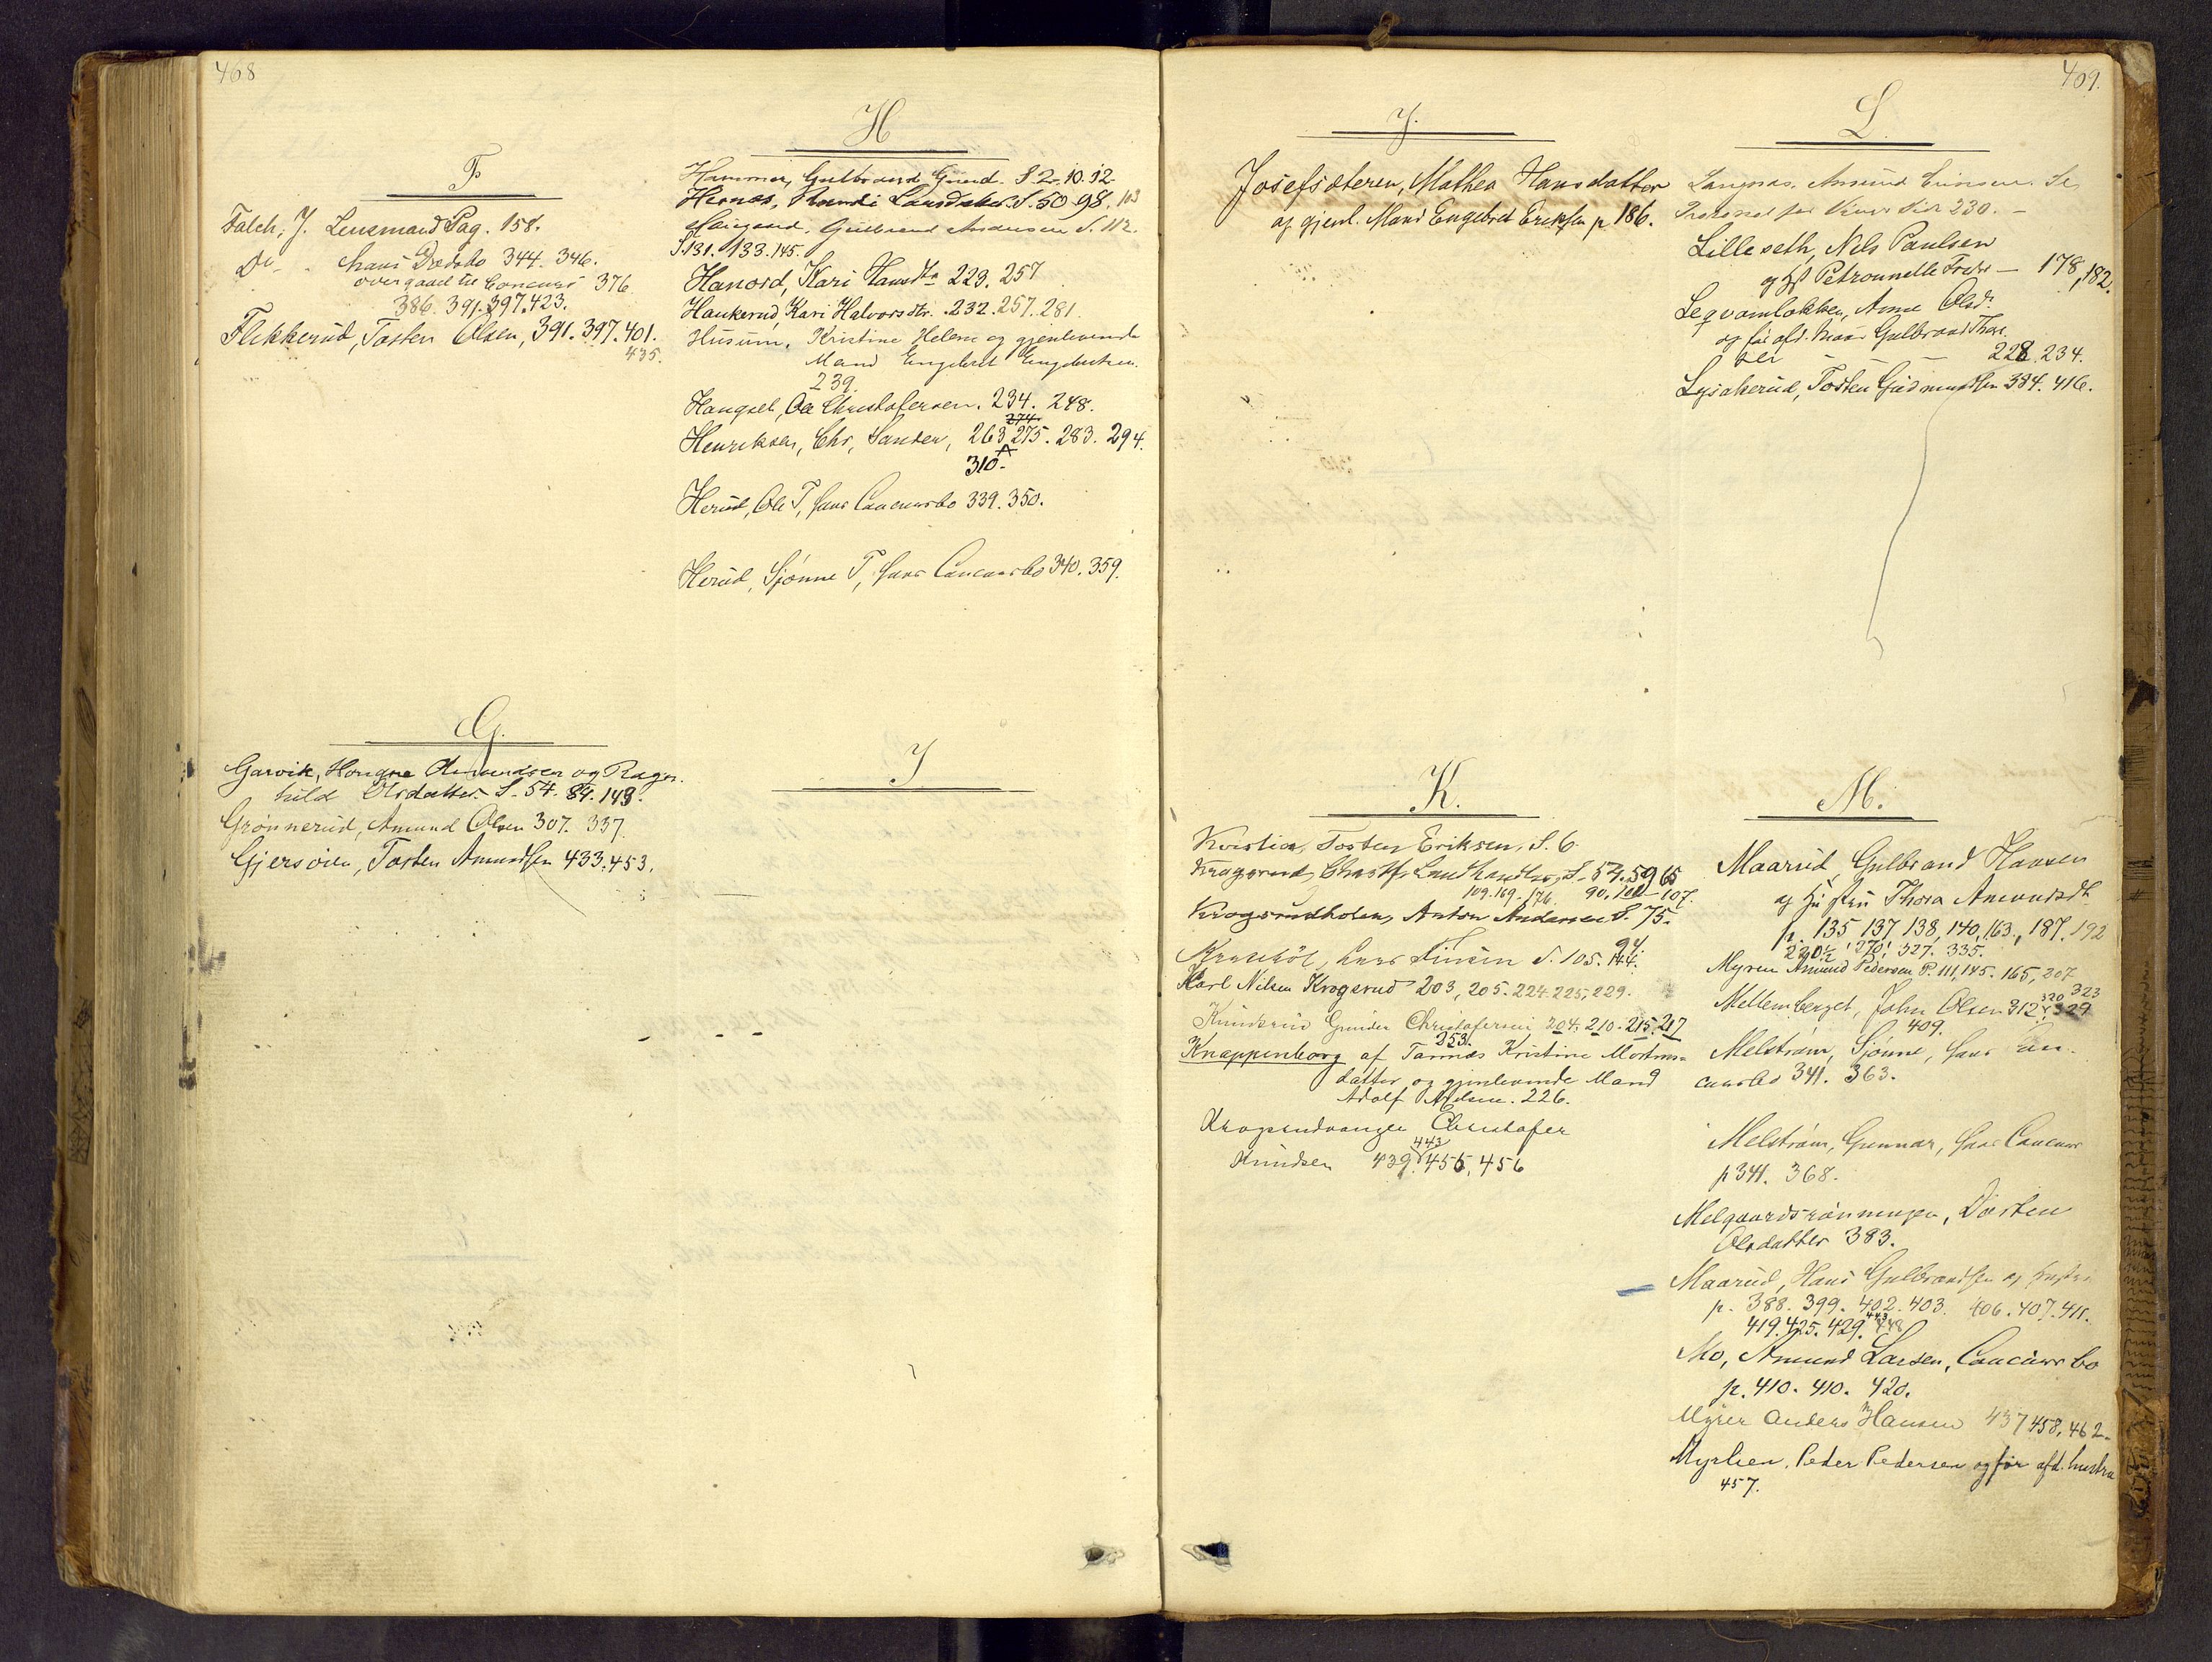 468
F
Falch, J. Lensmand Pag. 158.
Do - hans Dødsbo 344. 346.
overgaaet til Concurs 376
386. 391. 397. 423.
Flikkerud, Tosten Olsen, 391. 397. 401.
435.
G.
Garvik, Hougne Amundsen og Ragn-
hild Olsdatter S. 54. 84. 149.
Grønnerud, Amund Olsen 307. 337.
Gjersøien, Tosten Amundsen 433. 453.
H
Hammer, Gulbrand Gund. S. 2. 10. 12
Hernæs, Randi Larsdatter S. 50. 98. 103
Gulbrand Andersen S. 112.
S. 131. 133. 145.
Hanord, Kari Hansdtr 223. 257
Haukerud, Kari Halvorsdtr. 232. 257. 281.
Husum, Kristine Helene og gjenlevende
Mand Engebret Engebretsen.
239.
Haugsel, Ole Christofersen. 234. 248.
274.
Henriksen, Chr, Sander, 263 275. 283. 294.
310.
Herud, Ole T, hans Concursbo 339. 350.
Herud, Sjønne T, hans Concursbo 340. 359.
I
409.
J.
Josefsæteren, Mathea Hansdatter
og gjenl. Mand Engebret Eriksen p 186.
K.
Kristian, Tosten Eriksen, S. 6.
Krogsrud, Christf. Landhandler, S. 57. 59 65
109. 169. 176. 90. 101 - 107.
Krogsrudholen, Anton Andersen S. 75.
94.
Lars S. 105. 144.
Karl Nilsen Krogsrud 203, 205. 224. 225, 229.
Gunder Christofersen 204. 210. 215. 217
253.
Knappenborg af Tarnæs Kristine Mortens-
datter og gjenlevende Mand
Adolf Nilsen. 226.
Krogsrudvangen Christofer
443
Knudsen 439. 455, 456
L.
Langnæs, Amund
230. -
Lilleseth, Nils Paulsen
og H. Petronnelle - 178, 182.
Leqvamløkken, Anne Olsdr
og før afd. Mand Gulbrand Thor
sen - 228. 234.
Lysakerud, Tosten Gudmundsen 384. 416.
M.
Maarud, Gulbrand Hansen
og Hustru Thora Amundsdtr
p. 135 137 138, 140, 163, 187. 192
220½ 270. 327. 335.
Myren Amund Pedersen P. 111, 145. 165, 207
320 323
Mellemberget, John Olsen 312, 329
409.
Melstrøm, Sjønne, hans Con-
cursbo 341. 363.
Melstrøm, Gunnar, hans Concurs
p 341. 368.
Melgaardsrønningen, Dorten
Olsdatter 383.
Maarud, Hans Gulbrandsen og Hustru
p. 388. 399. 402. 403. 406. 407. 411.
443
419. 425. 429. 448
Mo, Amund Larsen, Concursbo
p. 410. 410. 420.
Myrer Anders Hansen 437 458, 462.
Myrlien, Peder Pedersen og før afd. hustru
457.